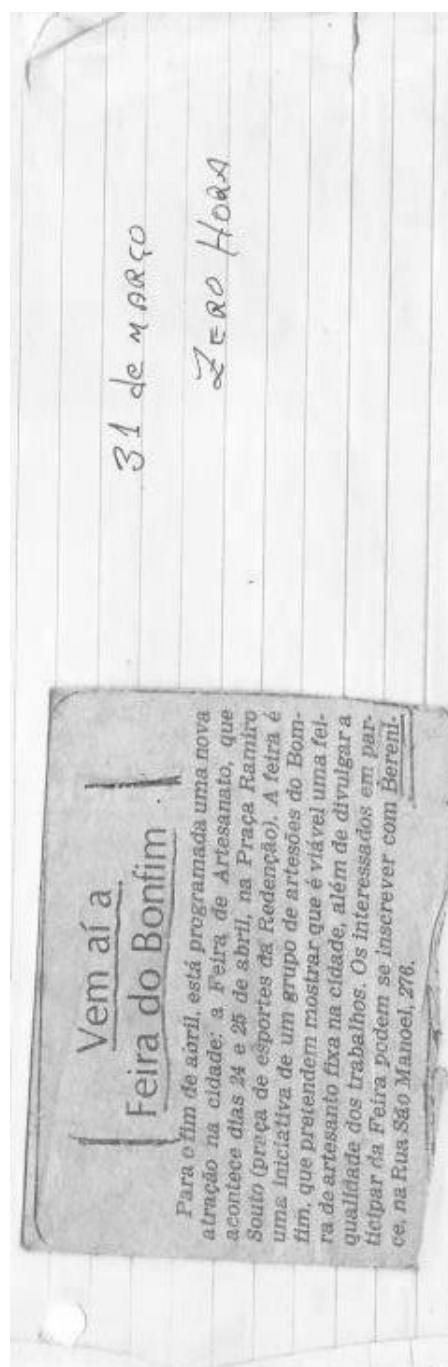 31 de MARÇO
ZERO HORA
Vem aí a
Feira do Bonfim
Para o fim de abril, está programada uma nova
atração na cidade: a Feira de Artesanato, que
acontece dias 24 e 25 de abril, na Praça Ramiro
Souto (praça de esportes da Redenção). A feira é
uma iniciativa de um grupo de artesões do Bom-
fim, que pretendem mostrar que é viável uma fei-
ra de artesanto fixa na cidade, além de divulgar a
qualidade dos trabalhos. Os interessados em par-
ticipar da Feira podem se inscrever com Bereni-
ce, na Rua São Manoel, 276.